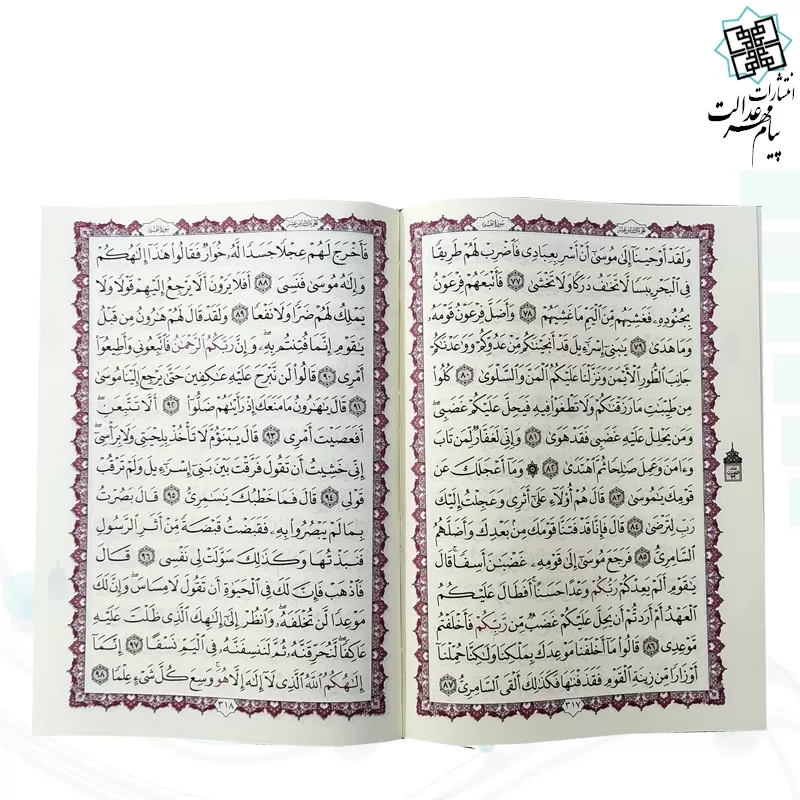 انتشارات
پیام مهر عدالت
وَلَقَدْ أَوْحَيْنَآ إِلَىٰ مُوسَىٰٓ أَنْ أَسْرِ بِعِبَادِى فَٱضْرِبْ لَهُمْ طَرِيقًا
فِى ٱلْبَحْرِ يَبَسًا لَّا تَخَٰفُ دَرَكًا وَلَا تَخْشَىٰ ٧٧ فَأَتْبَعَهُمْ فِرْعَوْنُ
بِجُنُودِهِۦ فَغَشِيَهُم مِّنَ ٱلْيَمِّ مَا غَشِيَهُمْ ٧٨ وَأَضَلَّ فِرْعَوْنُ قَوْمَهُۥ
وَمَا هَدَىٰ ٧٩ يَٰبَنِىٓ إِسْرَٰٓءِيلَ قَدْ أَنجَيْنَٰكُم مِّنْ عَدُوِّكُمْ وَوَٰعَدْنَٰكُمْ
جَانِبَ ٱلطُّورِ ٱلْأَيْمَنَ وَنَزَّلْنَا عَلَيْكُمُ ٱلْمَنَّ وَٱلسَّلْوَىٰ ٨٠ كُلُوا۟
مِن طَيِّبَٰتِ مَا رَزَقْنَٰكُمْ وَلَا تَطْغَوْا۟ فِيهِ فَيَحِلَّ عَلَيْكُمْ غَضَبِى ۖ
وَمَن يَحْلِلْ عَلَيْهِ غَضَبِى فَقَدْ هَوَىٰ ٨١ وَإِنِّى لَغَفَّارٌ لِّمَن تَابَ
وَءَامَنَ وَعَمِلَ صَٰلِحًا ثُمَّ ٱهْتَدَىٰ ٨٢ ۞ وَمَآ أَعْجَلَكَ عَن
قَوْمِكَ يَٰمُوسَىٰ ٨٣ قَالَ هُمْ أُو۟لَآءِ عَلَىٰٓ أَثَرِى وَعَجِلْتُ إِلَيْكَ
رَبِّ لِتَرْضَىٰ ٨٤ قَالَ فَإِنَّا قَدْ فَتَنَّا قَوْمَكَ مِنۢ بَعْدِكَ وَأَضَلَّهُمُ
ٱلسَّامِرِىُّ ٨٥ فَرَجَعَ مُوسَىٰٓ إِلَىٰ قَوْمِهِۦ غَضْبَٰنَ أَسِفًا ۚ قَالَ
يَٰقَوْمِ أَلَمْ يَعِدْكُمْ رَبُّكُمْ وَعْدًا حَسَنًا ۚ أَفَطَالَ عَلَيْكُمُ
ٱلْعَهْدُ أَمْ أَرَدتُّمْ أَن يَحِلَّ عَلَيْكُمْ غَضَبٌ مِّن رَّبِّكُمْ فَأَخْلَفْتُم
مَّوْعِدِى ٨٦ قَالُوا۟ مَآ أَخْلَفْنَا مَوْعِدَكَ بِمَلْكِنَا وَلَٰكِنَّا حُمِّلْنَآ
أَوْزَارًا مِّن زِينَةِ ٱلْقَوْمِ فَقَذَفْنَٰهَا فَكَذَٰلِكَ أَلْقَى ٱلسَّامِرِىُّ ٨٧
٣١٧
فَأَخْرَجَ لَهُمْ عِجْلًا جَسَدًا لَّهُۥ خُوَارٌ فَقَالُوا۟ هَٰذَآ إِلَٰهُكُمْ
وَإِلَٰهُ مُوسَىٰ فَنَسِىَ ٨٨ أَفَلَا يَرَوْنَ أَلَّا يَرْجِعُ إِلَيْهِمْ قَوْلًا وَلَا
يَمْلِكُ لَهُمْ ضَرًّا وَلَا نَفْعًا ٨٩ وَلَقَدْ قَالَ لَهُمْ هَٰرُونُ مِن قَبْلُ
يَٰقَوْمِ إِنَّمَا فُتِنتُم بِهِۦ ۖ وَإِنَّ رَبَّكُمُ ٱلرَّحْمَٰنُ فَٱتَّبِعُونِى وَأَطِيعُوٓا۟
أَمْرِى ٩٠ قَالُوا۟ لَن نَّبْرَحَ عَلَيْهِ عَٰكِفِينَ حَتَّىٰ يَرْجِعَ إِلَيْنَا مُوسَىٰ
٩١ قَالَ يَٰهَٰرُونُ مَا مَنَعَكَ إِذْ رَأَيْتَهُمْ ضَلُّوٓا۟ ٩٢ أَلَّا تَتَّبِعَنِ ۖ
أَفَعَصَيْتَ أَمْرِى ٩٣ قَالَ يَبْنَؤُمَّ لَا تَأْخُذْ بِلِحْيَتِى وَلَا بِرَأْسِىٓ ۖ
إِنِّى خَشِيتُ أَن تَقُولَ فَرَّقْتَ بَيْنَ بَنِىٓ إِسْرَٰٓءِيلَ وَلَمْ تَرْقُبْ
قَوْلِى ٩٤ قَالَ فَمَا خَطْبُكَ يَٰسَٰمِرِىُّ ٩٥ قَالَ بَصُرْتُ
بِمَا لَمْ يَبْصُرُوا۟ بِهِۦ فَقَبَضْتُ قَبْضَةً مِّنْ أَثَرِ ٱلرَّسُولِ
فَنَبَذْتُهَا وَكَذَٰلِكَ سَوَّلَتْ لِى نَفْسِى ٩٦ قَالَ
فَٱذْهَبْ فَإِنَّ لَكَ فِى ٱلْحَيَوٰةِ أَن تَقُولَ لَا مِسَاسَ ۖ وَإِنَّ لَكَ
مَوْعِدًا لَّن تُخْلَفَهُۥ ۖ وَٱنظُرْ إِلَىٰٓ إِلَٰهِكَ ٱلَّذِى ظَلْتَ عَلَيْهِ
عَاكِفًا ۖ لَّنُحَرِّقَنَّهُۥ ثُمَّ لَنَنسِفَنَّهُۥ فِى ٱلْيَمِّ نَسْفًا ٩٧ إِنَّمَآ
إِلَٰهُكُمُ ٱللَّهُ ٱلَّذِى لَآ إِلَٰهَ إِلَّا هُوَ ۚ وَسِعَ كُلَّ شَىْءٍ عِلْمًا ٩٨
٣١٨